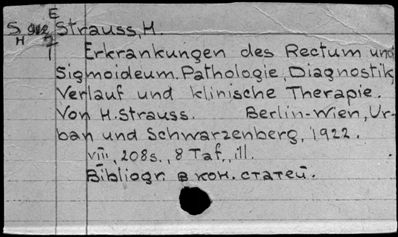 E
Strauss, H.
H 7
1
Erkrankungen des Rectum und
Sigmoideum. Pathologie, Diagnostik,
Verlauf und klinische Therapie.
Von H. Strauss. Berlin-Wien, Ur-
ban und Schwarzenberg, 1922.
VIII, 208s., 8 Taf., ill.
Bibliogr. в кон. статей.